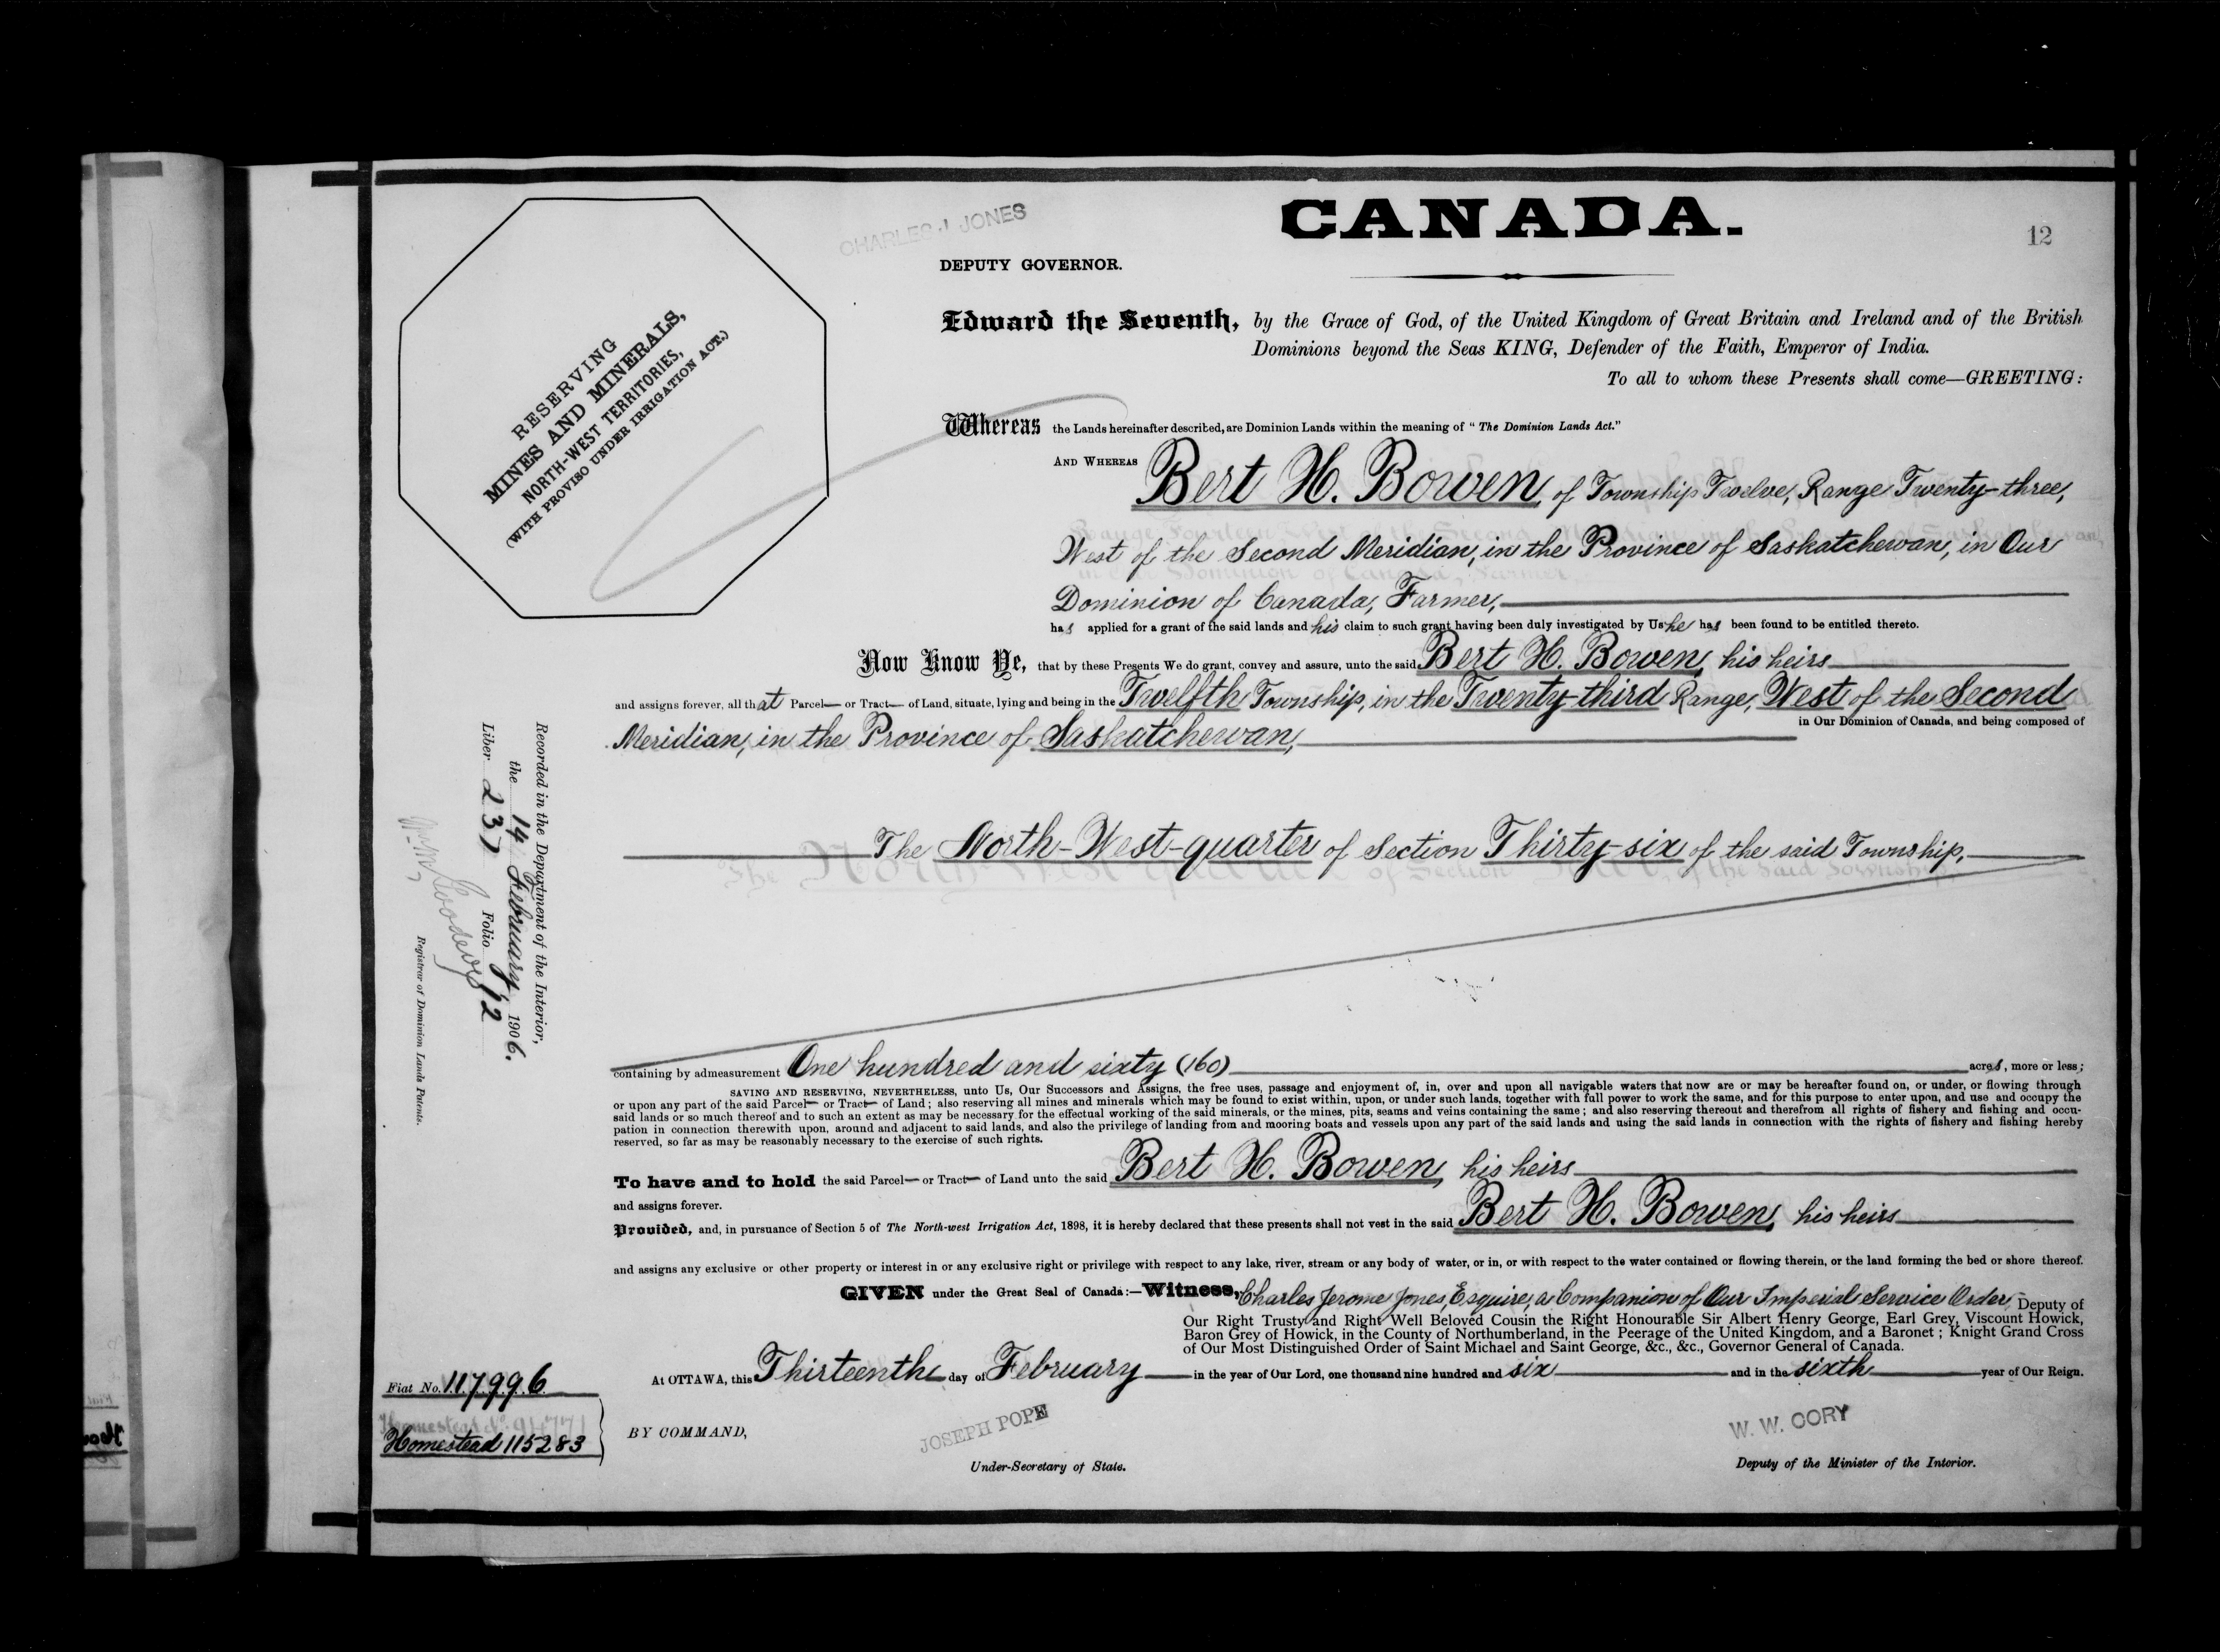 CANADA.
12
CHARLES J. JONES
DEPUTY GOVERNOR.
RESERVING
MINES AND MINERALS,
NORTH-WEST TERRITORIES,
(WITH PROVISO UNDER IRRIGATION ACT.)
Edward the Seventh, by the Grace of God, of the United Kingdom of Great Britain and Ireland and of the British
Dominions beyond the Seas KING, Defender of the Faith, Emperor of India.
To all to whom these Presents shall come—GREETING:
Whereas the Lands hereinafter described, are Dominion Lands within the meaning of "The Dominion Lands Act."
AND WHEREAS Bert H. Bowen, of Township Twelve, Range Twenty-three,
West of the Second Meridian, in the Province of Saskatchewan, in Our
Dominion of Canada, Farmer,
has applied for a grant of the said lands and his claim to such grant having been duly investigated by Us he has been found to be entitled thereto.
Now Know Ye, that by these Presents We do grant, convey and assure, unto the said Bert H. Bowen, his heirs
and assigns forever, all that Parcel or Tract of Land, situate, lying and being in the Twelfth Township, in the Twenty-third Range, West of the Second
Meridian, in the Province of Saskatchewan, in Our Dominion of Canada, and being composed of
The North-West-quarter of Section Thirty-six of the said Township,
Recorded in the Department of the Interior,
the 14 February 1906.
Liber 237 Folio 12
Registrar of Dominion Lands Patents.
containing by admeasurement One hundred and sixty (160) acres, more or less;
SAVING AND RESERVING, NEVERTHELESS, unto Us, Our Successors and Assigns, the free uses, passage and enjoyment of, in, over and upon all navigable waters that now are or may be hereafter found on, or under, or flowing through
or upon any part of the said Parcel or Tract of Land; also reserving all mines and minerals which may be found to exist within, upon, or under such lands, together with full power to work the same, and for this purpose to enter upon, and use and occupy the
said lands or so much thereof and to such an extent as may be necessary for the effectual working of the said minerals, or the mines, pits, seams and veins containing the same; and also reserving thereout and therefrom all rights of fishery and fishing and occu-
pation in connection therewith upon, around and adjacent to said lands, and also the privilege of landing from and mooring boats and vessels upon any part of the said lands and using the said lands in connection with the rights of fishery and fishing hereby
reserved, so far as may be reasonably necessary to the exercise of such rights.
To have and to hold the said Parcel or Tract of Land unto the said Bert H. Bowen, his heirs
and assigns forever.
Provided, and, in pursuance of Section 5 of The North-west Irrigation Act, 1898, it is hereby declared that these presents shall not vest in the said Bert H. Bowen, his heirs
and assigns any exclusive or other property or interest in or any exclusive right or privilege with respect to any lake, river, stream or any body of water, or in, or with respect to the water contained or flowing therein, or the land forming the bed or shore thereof.
GIVEN under the Great Seal of Canada:—Witness, Charles Jerome Jones, Esquire, a Companion of Our Imperial Service Order, Deputy of
Our Right Trusty and Right Well Beloved Cousin the Right Honourable Sir Albert Henry George, Earl Grey, Viscount Howick,
Baron Grey of Howick, in the County of Northumberland, in the Peerage of the United Kingdom, and a Baronet; Knight Grand Cross
of Our Most Distinguished Order of Saint Michael and Saint George, &c., &c., Governor General of Canada.
At OTTAWA, this Thirteenth day of February in the year of Our Lord, one thousand nine hundred and six and in the sixth year of Our Reign.
Fiat No. 117996
Homestead 115283
BY COMMAND,
JOSEPH POPE
Under-Secretary of State.
W. W. CORY
Deputy of the Minister of the Interior.